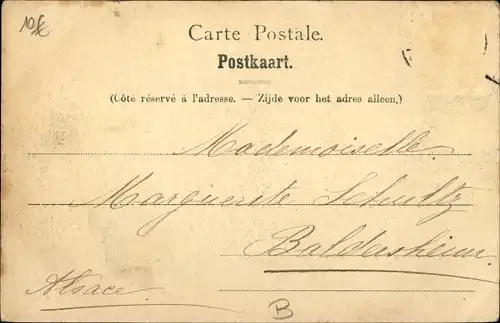 10 €
Carte Postale.
Postkaart.
(Côté réservé à l'adresse. — Zijde voor het adres alleen.)
Mademoiselle
Marguerite Schultz
Baldersheim
Alsace.
B